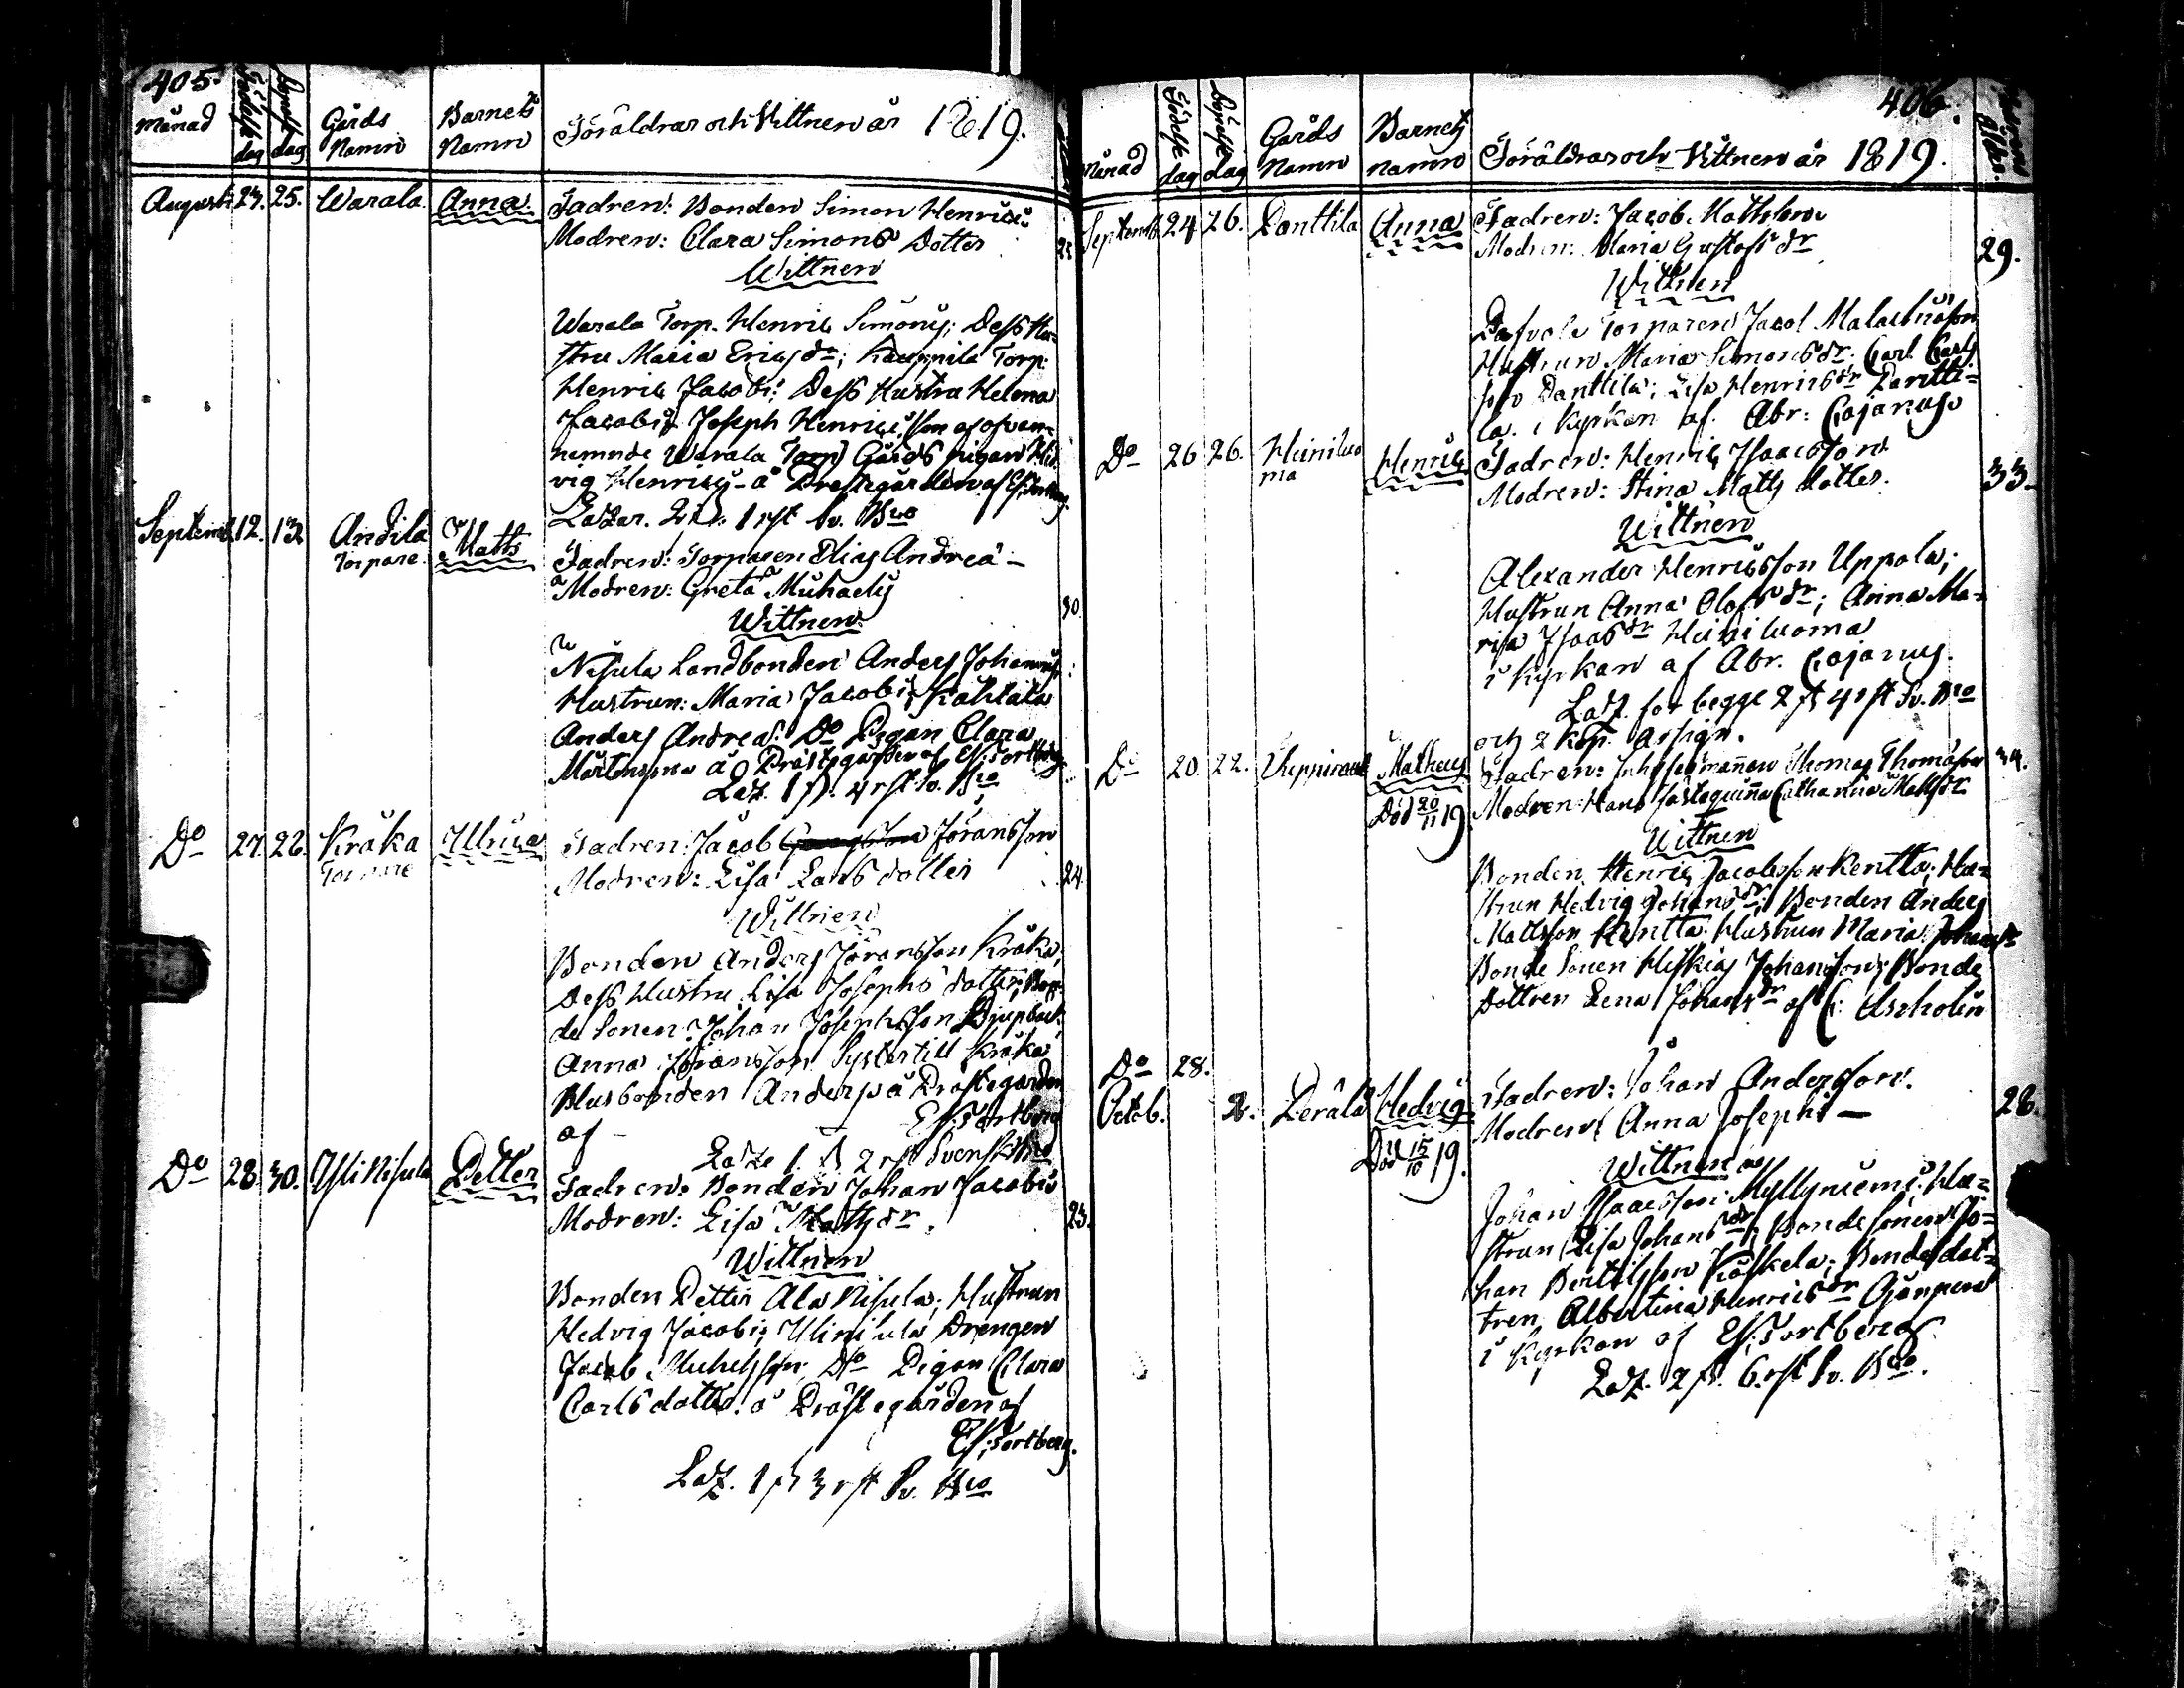 405.
Månad Födelse dag Döpelse dag Gårds Namn Barnets Namn Föräldrar och Wittnen år 1819.
August 24. 25. Warala Anna Fadren: Bonden Simon Henrici
Modren: Clara Simons Dotter
Wittnen
Warala Torp. Henric Simons; Dess Hu-
stru Maria Ericsdr; Kauppila Torp.
Henric Jacobi: Dess Hustru Helena
Jacobi; Joseph Henrici Son af ofvan-
nemnde Warala Torp Gårds pigan Hed
vig Henrici - å Prestegården af Es: Tortberg
Laz. 1 rst Sv. Bco
Septemb. 12. 13 Andila Torpare Matts
Fadren: Torparen Elias Andreæ -
Modren: Greta Michaelis
30.
Wittnen
Nisula Landbonden Anders Johannis
Hustrun: Maria Jacobi;
Anders Andreæ. Do Pigan Clara
Mårtensson å Prästegården af Es: Tortberg
Laz. 1 rd. 4 rst Sv. Bco
Do 27. 28. Kråka Torpare Ullrica Fadren: Jacob Jöransson
Modren: Lisa Lars dotter
24.
Wittnen
Bonden Anders Jöransson Kråka;
Dess Hustru Lisa Josephs dotter; Bon-
de Sonen: Johan Josephsson Djupbac
Anna Jöransson Syster till Kråka
Husbonden Anders å Prästegården
af Es: Tortberg
Laz. 1 rd 2 rst Svensk Bco
Do 28. 30. Yli Nisula Petter
Fadren: Bonden Johan Jacobi
Modren: Lisa Mattsdr.
23.
Wittnen
Bonden Petter Ala Nisula; Hustrun
Hedvig Jacobi; Ylinisula Drengen
Jacob Michelsson; Do Pigan Clara
Carls dotter. å Prästegården af
Es: Tortberg.
Laz. 1 rd 3 rst Sv. Bco
406.
Månad Födelse dag Döpelse dag Gårds Namn Barnets namn Föräldrar och Wittnen år 1819.
Septemb. 24 26. Panttila Anna Fadren: Jacob Mattsson
Modren: Maria Gustafs dr
29.
Wittnen
Torparen Jacob Malachiasson
Hustrun Maria Simonsdr. Carl Carls
son Panttila; Lisa Henricsdr Pantti-
la. i Kyrkan af Abr: Cajanus
Do 26 26. Heiniluo ma Henric Fadren: Henric Isaacsson
Modren: Stina Matts dotter.
33.
Wittnen
Alexander Henricsson Uppala;
Hustrun Anna Olofs dr; Anna Ma-
ria Isaas dr Heiniluoma
i Kyrkan af Abr. Cajanus.
Laz. för begge 2 rd 4 rst Sv. Bco
och 2 kop. Assign.
Do 20. 22. Matheus Fadren: Inhysesmannen Thomas Thomasson
34.
Död 20/11 19 Modren: Hans Catharina Matts dr.
Wittnen
Bonden Henric Jacobsson Kentta; Hu-
strun Hedvig Johans dr; Bonden Anders
Mattsson Kentta: Hustrun Maria Johansdr
Bonde Sonen Hiskias Johansson; Bonde
Dottren Lena Johansdr af C: Ascholin
Do 28.
Octob. 2. Perälä Hedvig Fadren: Johan Andersson.
Modren: Anna Josephi -
28.
Död 15/10 19.
Wittnen
Johan Isaacsson Myllyniemi; Hu-
strun Lisa Johans dr; Bonde Sonen Jo-
han Bertilsson Koskela; Bonde dot-
tren Albertina Henrics dr
i Kyrkan af Es: Tortberg.
Laz. 2 rd. 6. rst Sv. Bco.